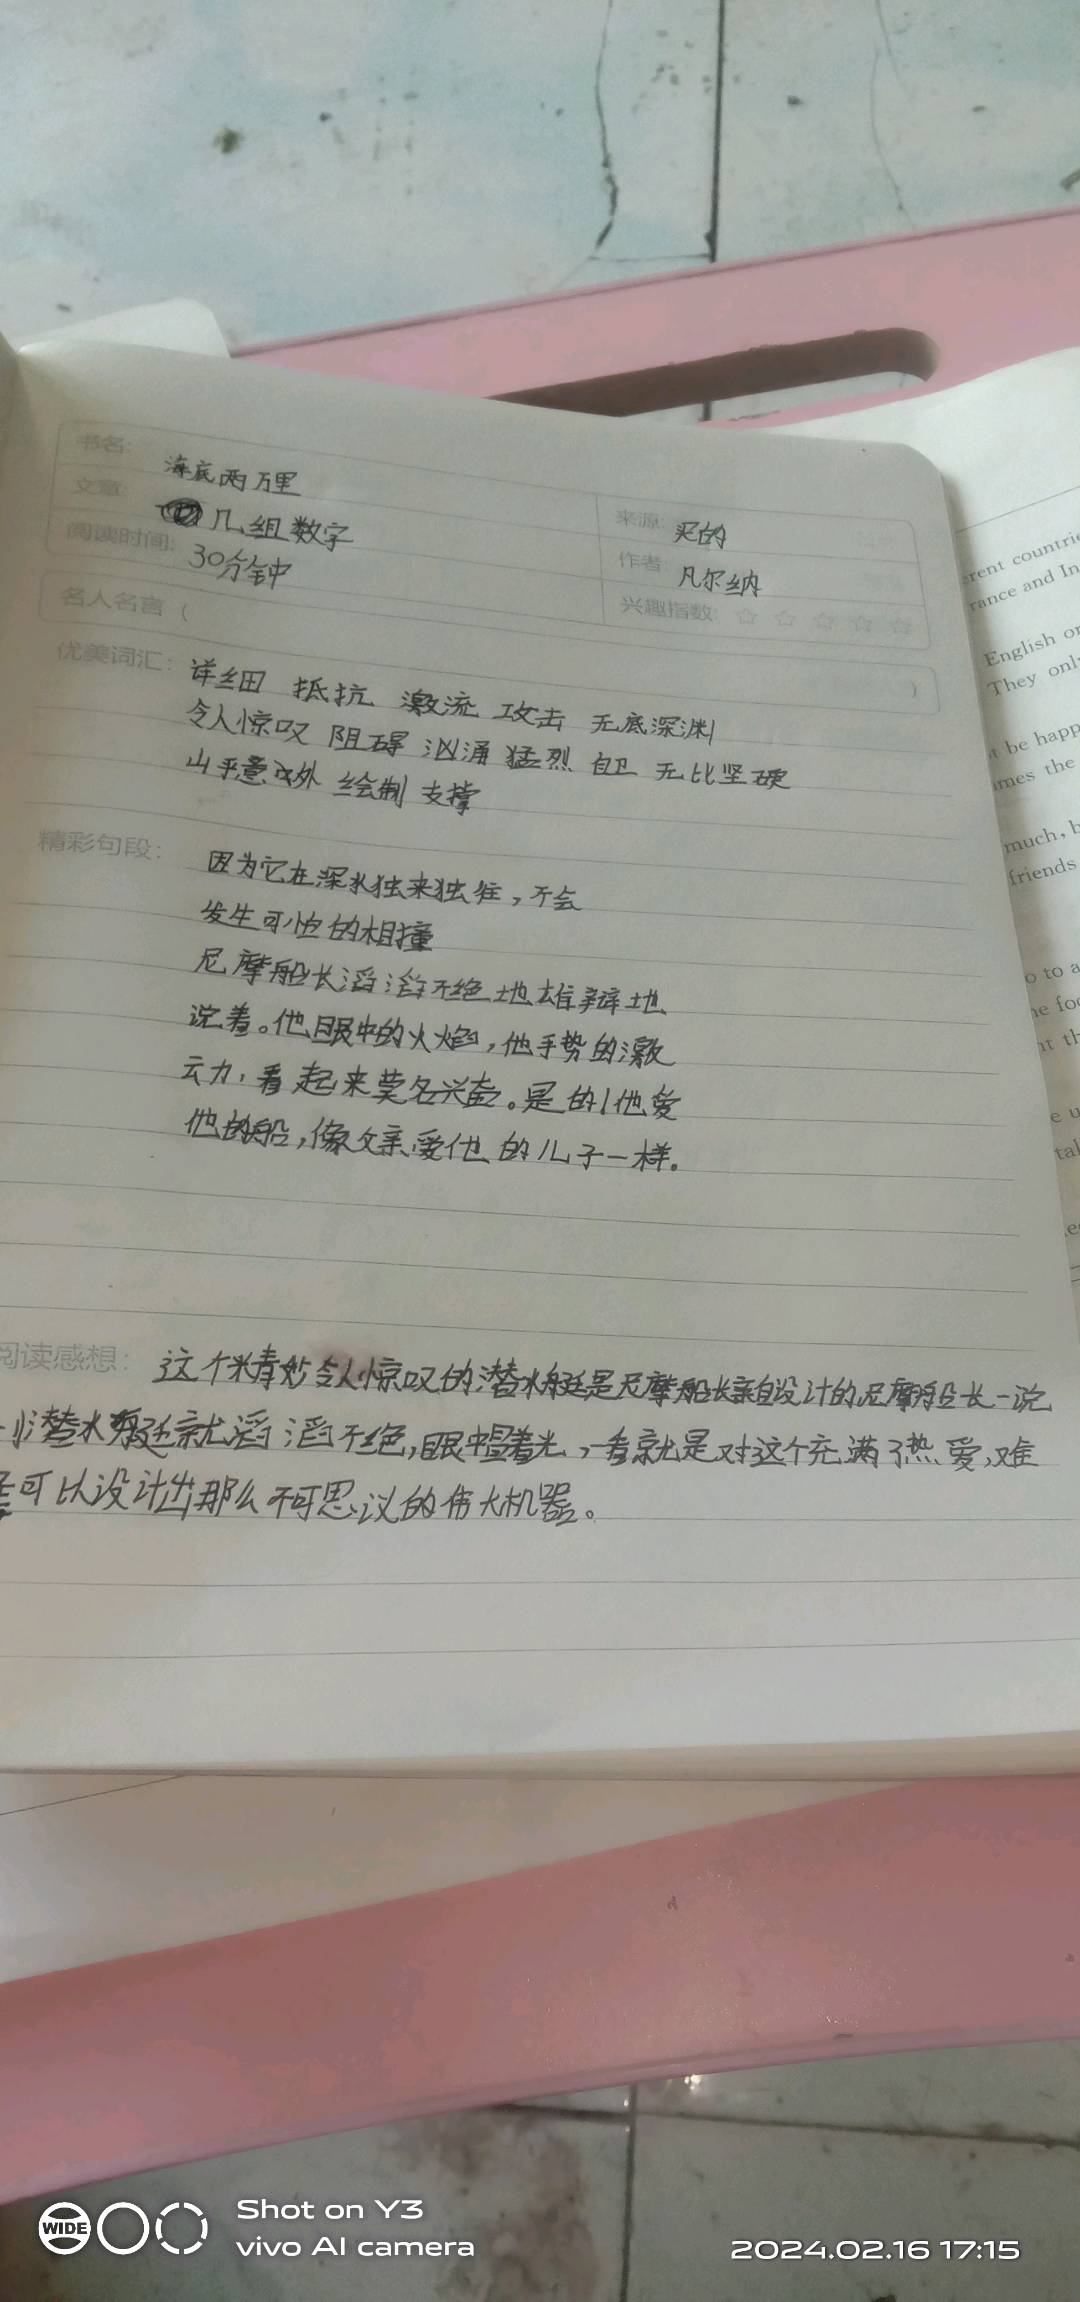 书名: 海底两万里
文章: 几组数字
来源: 买的
阅读时间: 30分钟
作者: 凡尔纳
兴趣指数: ☆ ☆ ☆ ☆ ☆
名人名言 ( )
优美词汇: 详细 抵抗 激流 攻击 无底深渊
令人惊叹 阻碍 汹涌 猛烈 自卫 无比坚硬
出乎意外 绘制 支撑
精彩句段: 因为它在深水独来独往,不会
发生可怕的相撞
尼摩船长滔滔不绝地雄辩地
说着。他眼中的火焰,他手势的激
动,看起来莫名兴奋。是的!他爱
他的船,像父亲爱他的儿子一样。
阅读感想: 这个精妙令人惊叹的潜水艇是尼摩船长亲自设计的尼摩船长一说
潜水艇就滔滔不绝,眼中冒着光,一看就是对这个充满了热爱,难
怪可以设计出那么不可思议的伟大机器。
erent countrie
rance and In
English or
They only
t be happ
mes the
much, b
friends
o to a
he foo
nt th
e u
tal
WIDE
Shot on Y3
vivo AI camera
2024.02.16 17:15